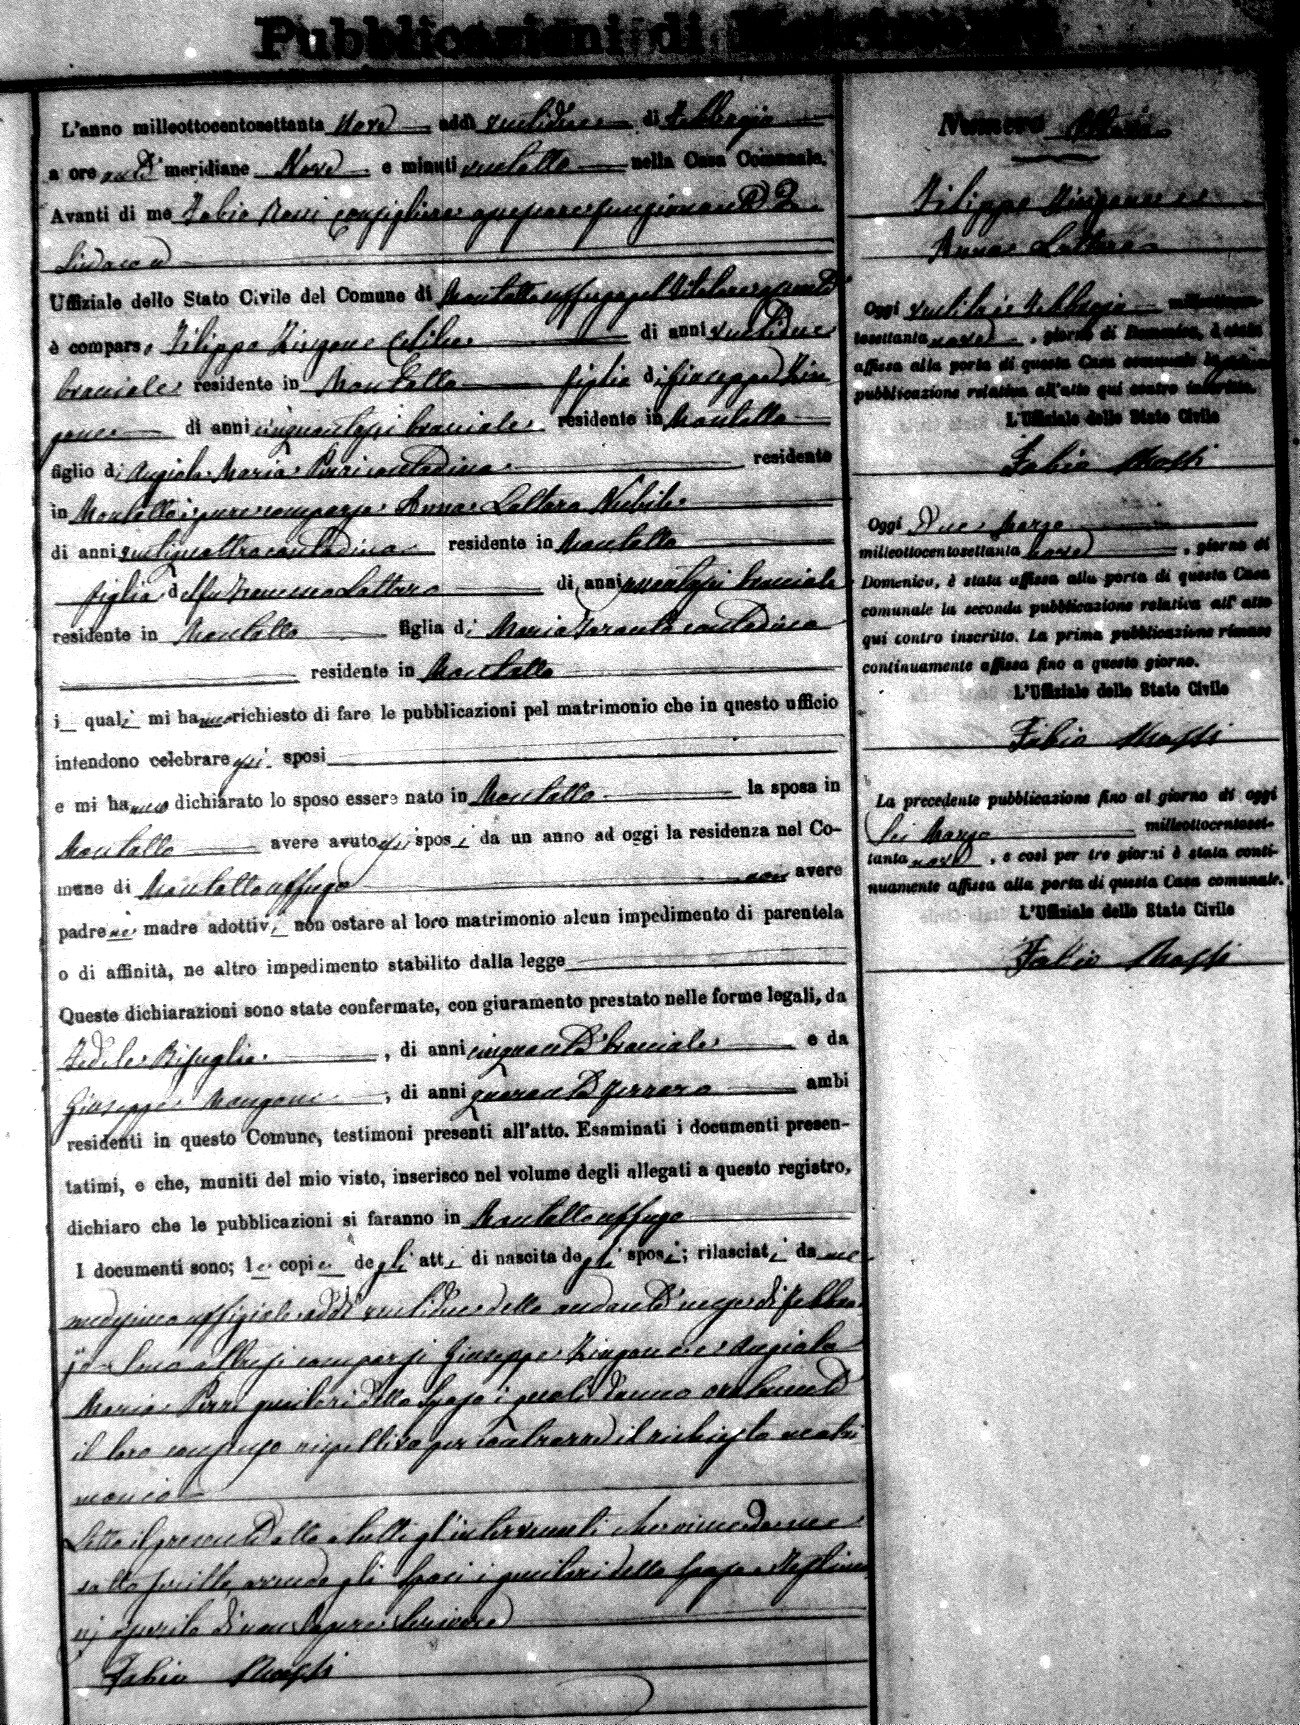 Pubblicazioni di Matrimonio
L'anno milleottocentosettanta Nove addì ventidue di Febbrajo
a ore anti meridiane Nove e minuti ventotto nella Casa Comunale.
Avanti di me Fabio Massi Consigliere funzionante da
Sindaco ed
Uffiziale dello Stato Civile del Comune di Montalto uffugo
è comparso Filippo Zingone Celibe di anni ventidue
bracciale residente in Montalto figlio di Giuseppe Zin
gone di anni cinquantasei bracciale residente in Montalto
figlio di Angiola Maria Pirri contadina residente
in Montalto è pure comparsa Anna Lattaro Nubile
di anni ventiquattro contadina residente in Montalto
figlia del fu Francesco Lattaro di anni bracciale
residente in Montalto figlia di Maria Taranto contadina
residente in Montalto
i quali mi hanno richiesto di fare le pubblicazioni pel matrimonio che in questo ufficio
intendono celebrare essi sposi
e mi hanno dichiarato lo sposo essere nato in Montalto la sposa in
Montalto avere avuto essi sposi da un anno ad oggi la residenza nel Co-
mune di Montalto uffugo non avere
padre nè madre adottivi non ostare al loro matrimonio alcun impedimento di parentela
o di affinità, ne altro impedimento stabilito dalla legge
Queste dichiarazioni sono state confermate, con giuramento prestato nelle forme legali, da
Fedele Bisuglia, di anni cinquanta bracciale e da
Giuseppe Mangone, di anni quaranta ferraro ambi
residenti in questo Comune, testimoni presenti all'atto. Esaminati i documenti presen-
tatimi, e che, muniti del mio visto, inserisco nel volume degli allegati a questo registro,
dichiaro che le pubblicazioni si faranno in Montalto uffugo
I documenti sono; le copie degli atti di nascita degli sposi; rilasciati da me
medesimo uffiziale addì ventidue dello andante mese di febbra
jo sono altresì comparsi Giuseppe Zingone e Angiola
Maria Pirri genitori dello Sposo i quali danno oralmente
il loro consenso rispettivo per contrarre il richiesto matri
monio
Letto il presente atto a tutti gl'intervenuti si è da me
sottoscritto, avendo gli Sposi i genitori dello Sposo e Testimo
nj asserito di non Sapere Scrivere
Fabio Massi
Numero
Filippo Zingone e
Anna Lattaro
Oggi ventitre Febbrajo milleottocen-
tosettanta nove, giorno di Domenica, è stata
affissa alla porta di questa Casa comunale la prima
pubblicazione relativa all'atto qui contro inscritto.
L'Uffiziale dello Stato Civile
Fabio Massi
Oggi Due Marzo
milleottocentosettanta nove, giorno di
Domenica, è stata affissa alla porta di questa Casa
comunale la seconda pubblicazione relativa all'atto
qui contro inscritto. La prima pubblicazione rimase
continuamente affissa fino a questo giorno.
L'Uffiziale dello Stato Civile
Fabio Massi
La precedente pubblicazione fino al giorno di oggi
Sei Marzo milleottocentoset-
tanta nove, e così per tre giorni è stata conti-
nuamente affissa alla porta di questa Casa comunale.
L'Uffiziale dello Stato Civile
Fabio Massi